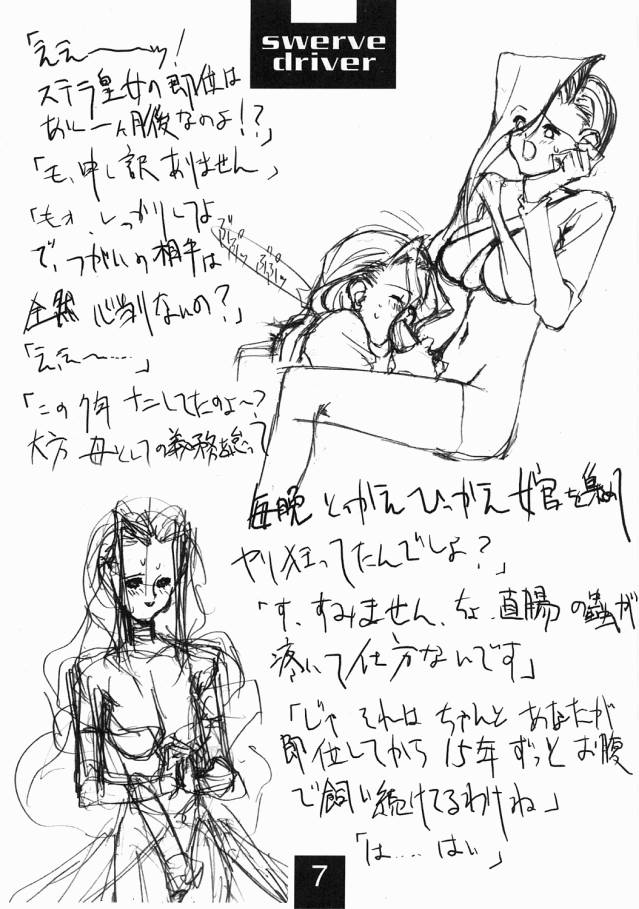 swerve
driver
「ええ───ッ!
ステラ皇女の即位は
あと一ヶ月後なのよ!?」
「も、申し訳ありません」
「もォ、しっかりしてよ
で、つがいの相手は
全然心当りないの?」
「ええ〜……」
「この7年 ナニしてたのよ〜?
大方 母としての義務を怠って
毎晩 とっかえひっかえ女官を集め
ヤリ狂ってたんでしょ?」
「す、すみません、ちょ、直腸の蟲が
疼いて仕方ないです」
「じゃ それは ちゃんと あなたが
即位してから 15年ずっと お腹
で飼い続けてるわけね」
「は……はい」
7